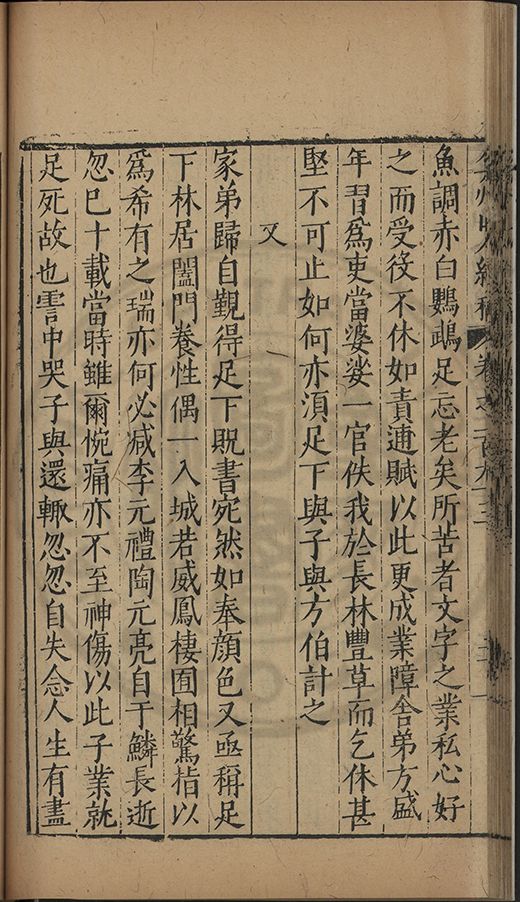 魚調赤白鸚鵡足忘老矣所苦者文字之業私心好
之而受役不休如責逋賦以此更成業障舍弟方盛
年習為吏當婆娑一官佚我於長林豐草而乞休甚
堅不可止如何亦湏足下與子與方伯計之
又
家弟歸自覲得足下貺書宛然如奉顔色又亟稱足
下林居闔門養性偶一入城若威鳳棲囿相驚指以
爲希有之瑞亦何必减李元禮陶元亮自于鱗長逝
忽已十載當時雖爾惋痛亦不至神傷以此子業就
足死故也害中哭子與還輙忽忽自失念人生有盡